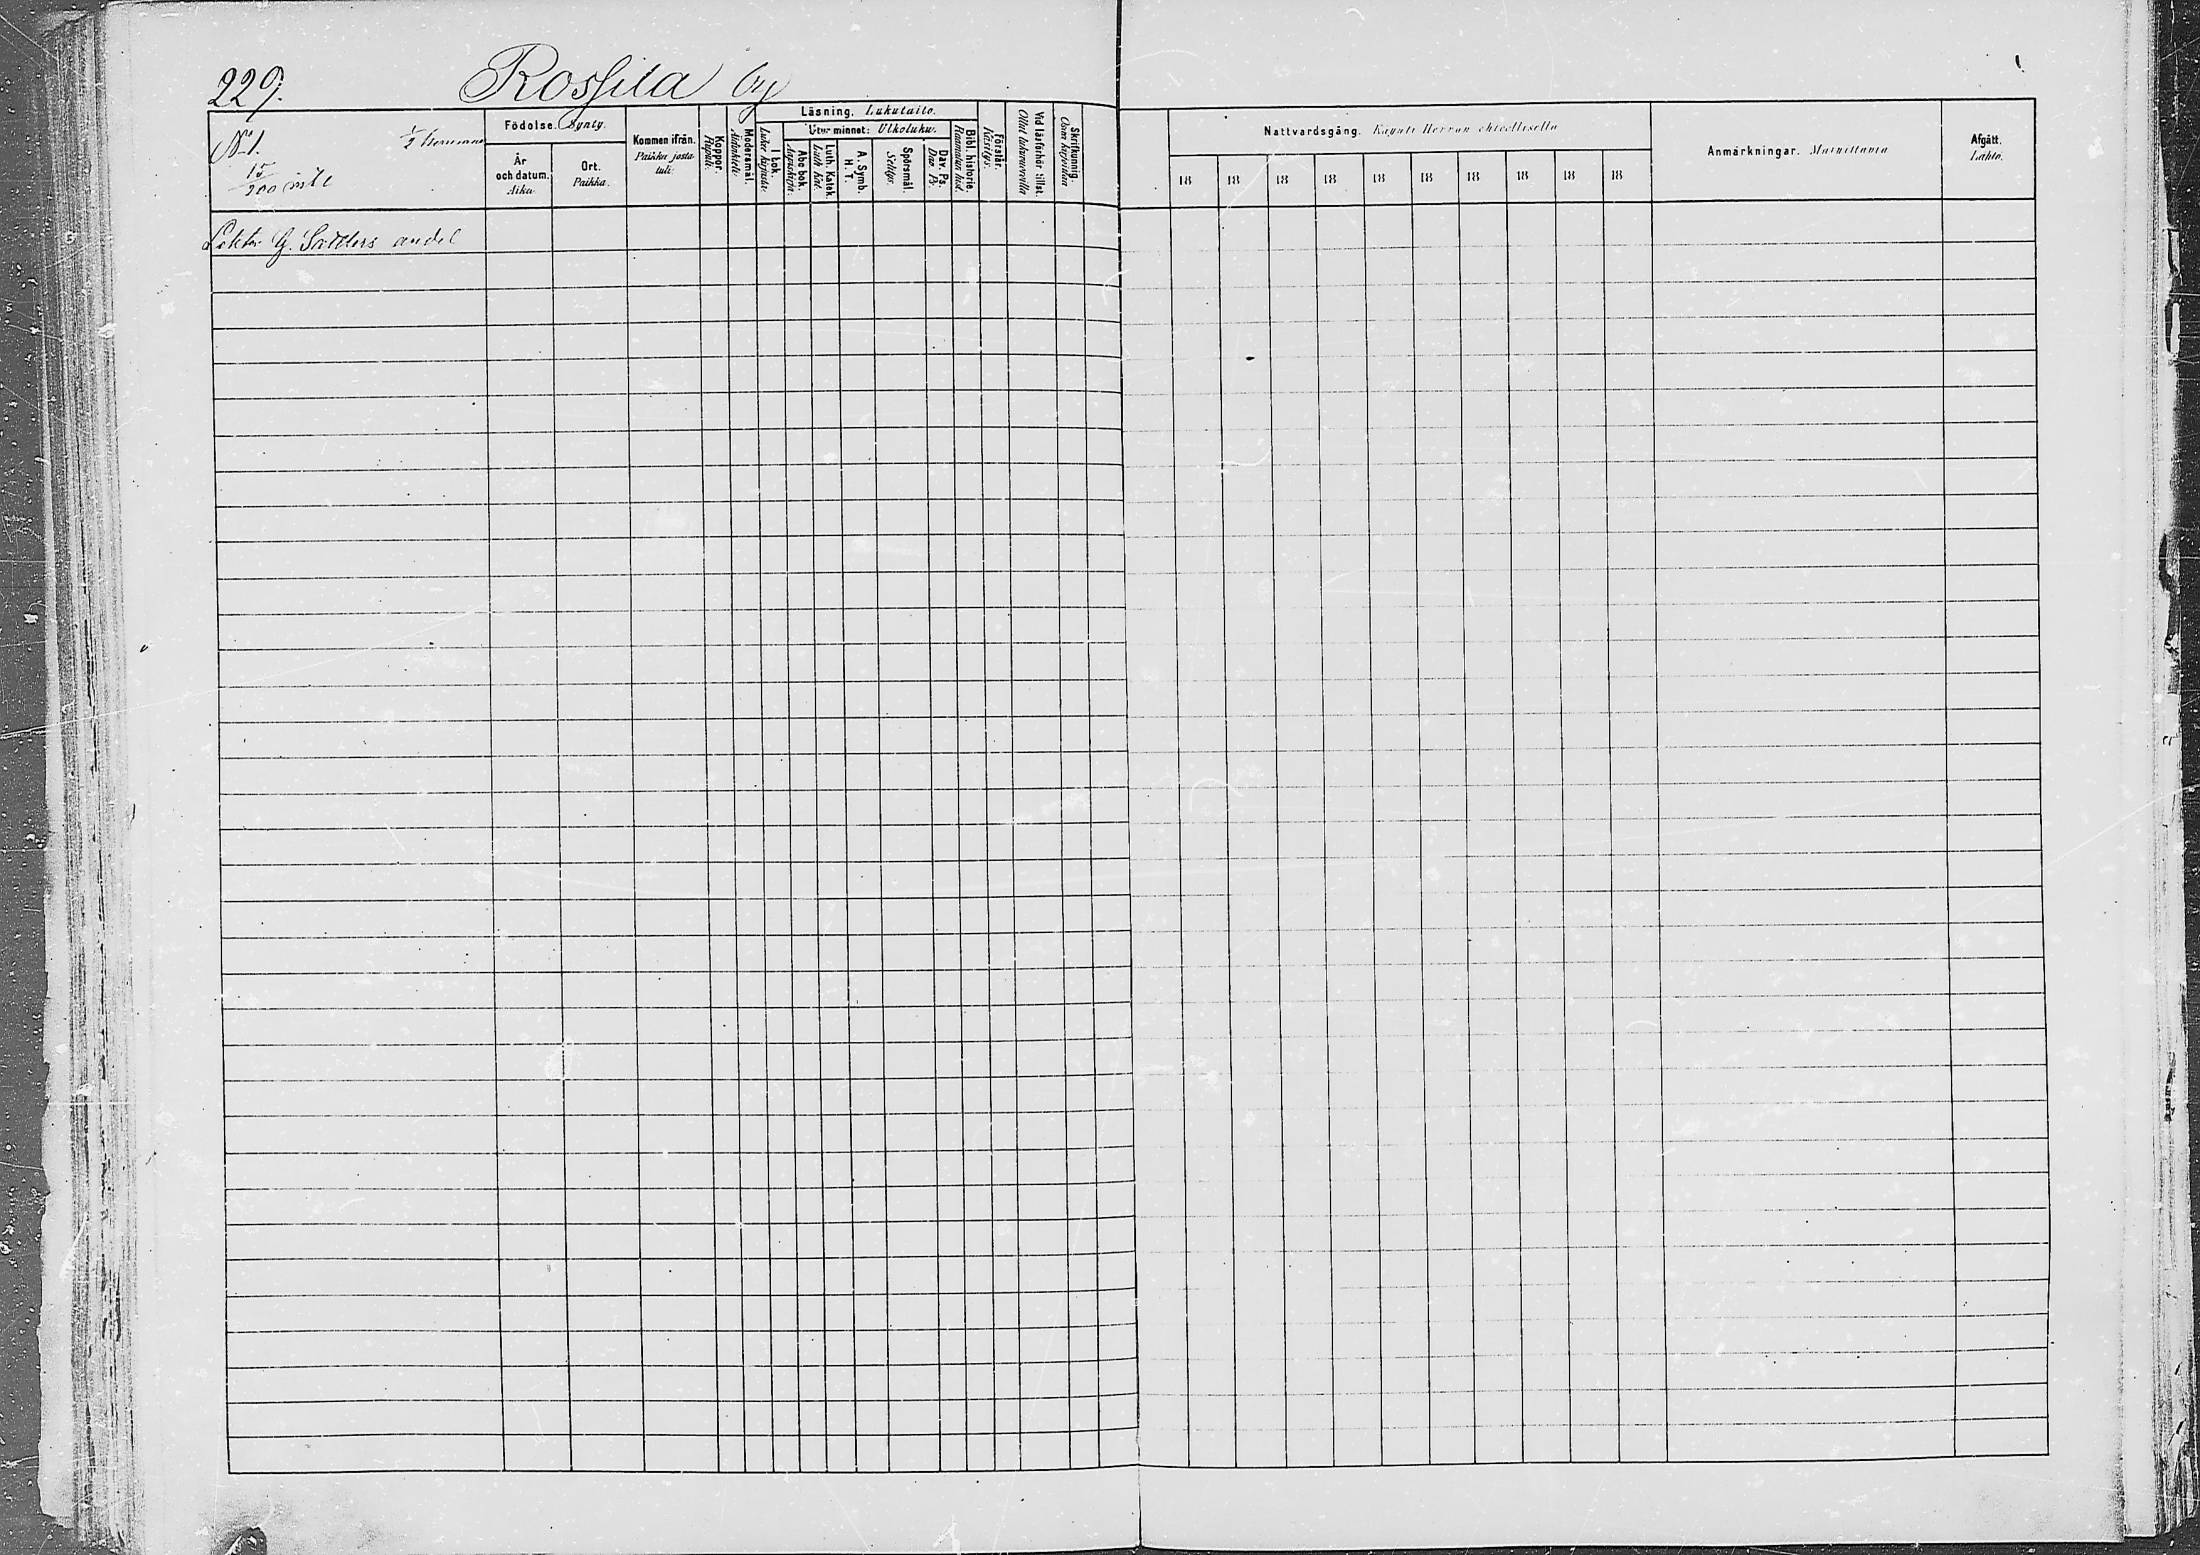 229. Rossila by
No 1.
15/200 mtl
Födolse. Synty.
År och datum. Aika.
Ort. Paikka.
Kommen ifrån. Paikka josta tuli.
Koppor. Rupuli.
Modersmål. Äidinkieli.
Läsning. Lukutaito.
I bok. Lukee kirjasta.
Utur minnet: Ulkoluku.
Abc bok. Aapiskirja.
Luth. Katek. Luth Kat.
A. Symb. H. T.
Spörsmål. Selitys.
Dav. Ps. Dav. Ps.
Bibl. historie. Raamatun hist.
Förstår. Käsitys.
Vid läsförhör tillst. Ollut lukuvuorolla
Skrifkunnig. Osaa kirjoittaa
Nattvardsgång. Käynti Herran ehtoollisella
18 18 18 18 18 18 18 18 18 18
Anmärkningar. Muistutuksia
Afgått. Lähtö.
G. andel